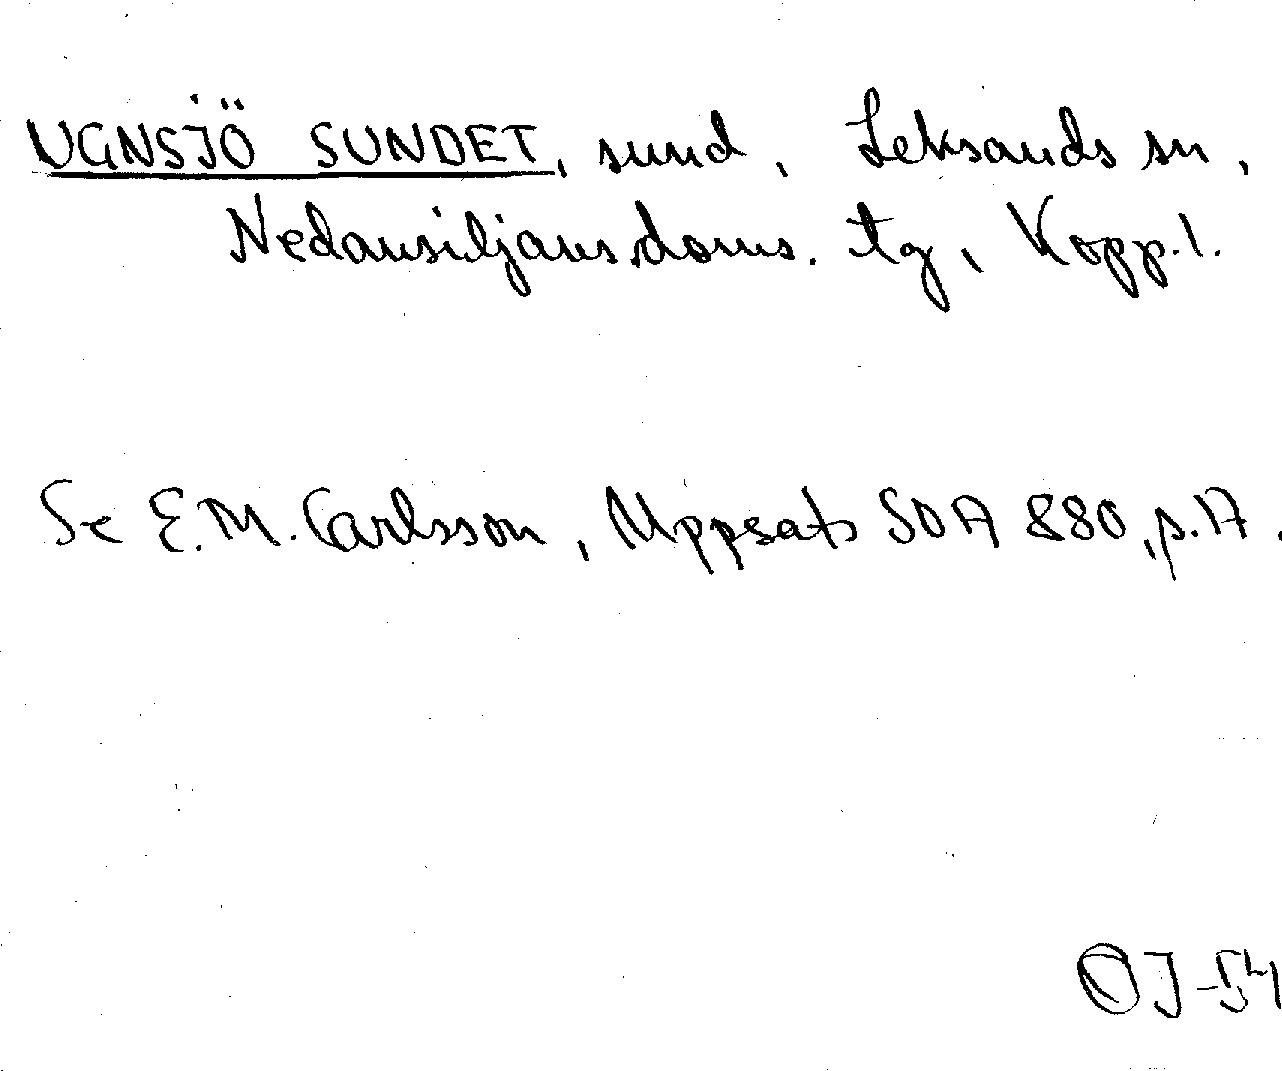 UGNSJÖ SUNDET, sund, Leksands sn,
Nedansiljans doms. tg, Kopp. l.
Se E.M. Carlsson, Uppsats SOA 880, p. 17.
OJ-54